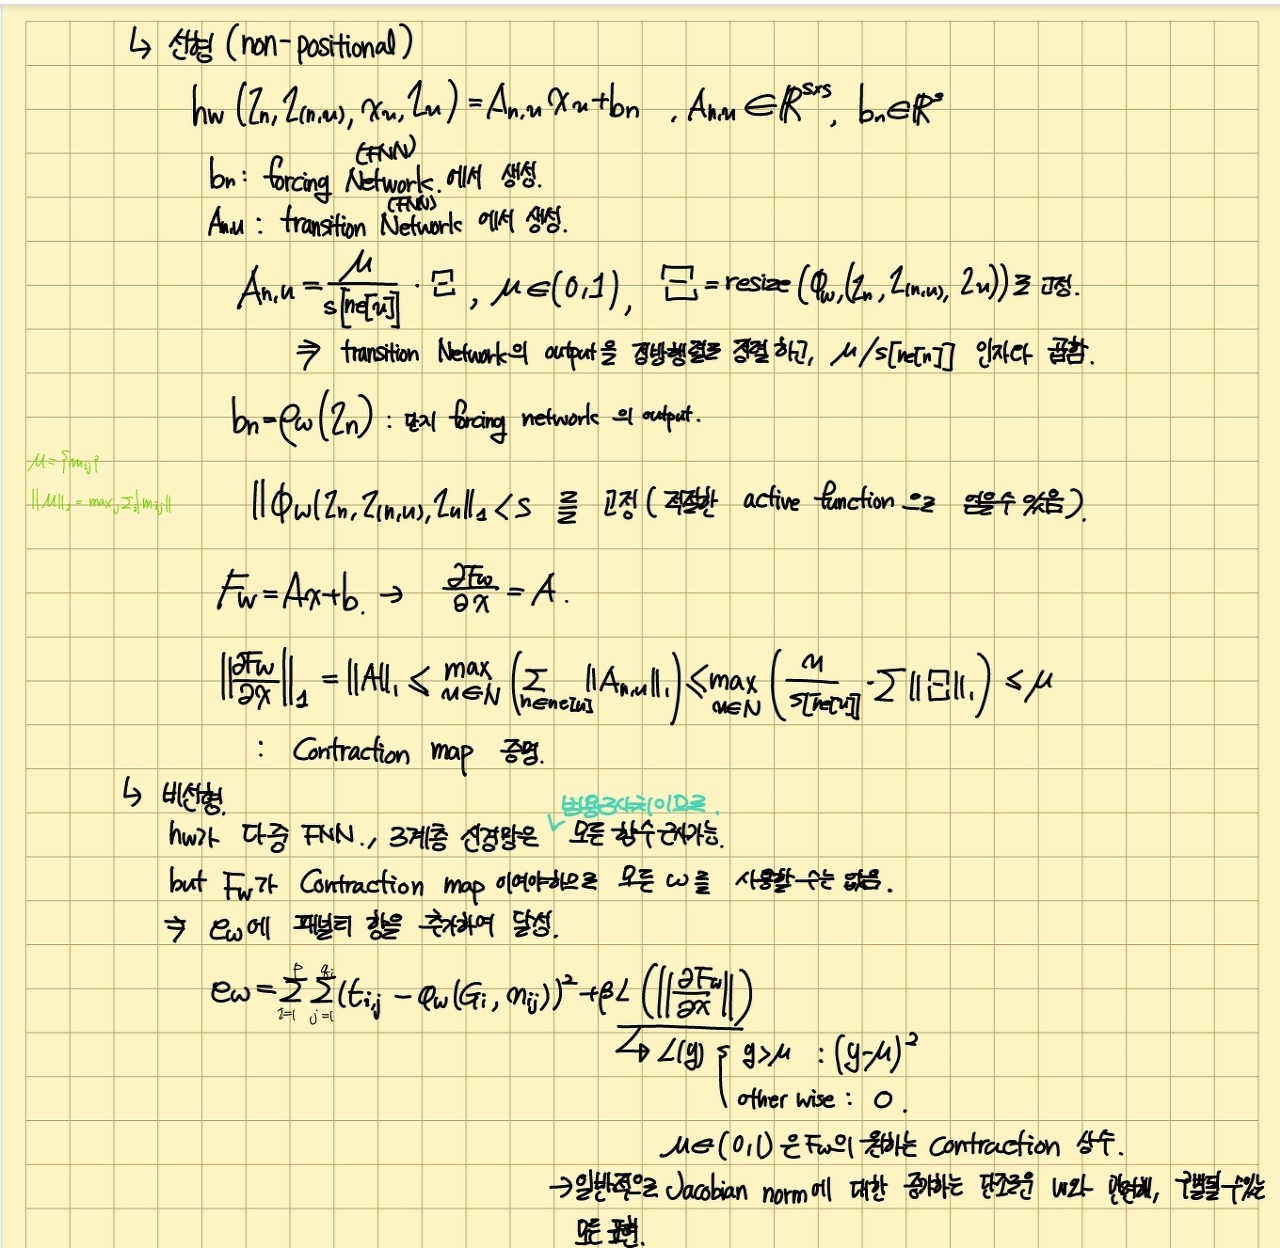 ↳ 선형 (non-positional)
hw (ln, l(n,u), xu, lu) = An,u xu + bn , An,u ∈ ℝ^s×s, bn ∈ ℝ^s
(FNN)
bn : forcing Network. 에서 생성.
(FNN)
An,u : transition Network 에서 생성.
An,u = μ / s|ne[u]| · Ξ , μ∈(0,1), Ξ = resize (ϕw,(ln, l(n,u), lu))로 고정.
⇒ transition Network의 output을 정방행렬로 정렬하고, μ/s[ne[n]] 인자다 곱함.
bn = ρw(ln) : 단지 forcing network 의 output.
M = {mij}
||M||₁ = maxj Σi|mij||
||ϕw(ln, l(n,u), lu||₁ < s 를 고정 ( 적절한 active function 으로 얻을수 있음 ).
Fw = Ax+b. → ∂Fw/∂x = A.
||∂Fw/∂x||₁ = ||A||₁ ≤ max u∈N (Σ n∈ne[u] ||An,u||₁) ≤ max u∈N (μ / s[ne[u]] · Σ ||Ξ||₁) ≤ μ
: Contraction map 증명.
↳ 비선형.
범용근사치이므로.
hw가 다중 FNN., 3계층 신경망은 ✓ 모든 함수 근사가능.
but Fw가 Contraction map 이여야하므로 모든 ω를 사용할 수는 없음.
⇒ ew에 패널티 항을 추가하여 달성.
ew = Σ i=1 p Σ j=1 qi (ti,j − φw(Gi, nij))² + βL (||∂Fw/∂x||)
↳ L(y) { y>μ : (y−μ)²
other wise : 0.
μ∈(0,1)은 Fw의 원하는 contraction 상수.
→ 일반적으로 Jacobian norm에 대한 증가하는 단조로운 w와 관련해, 구별될 수있는
모든 표현.